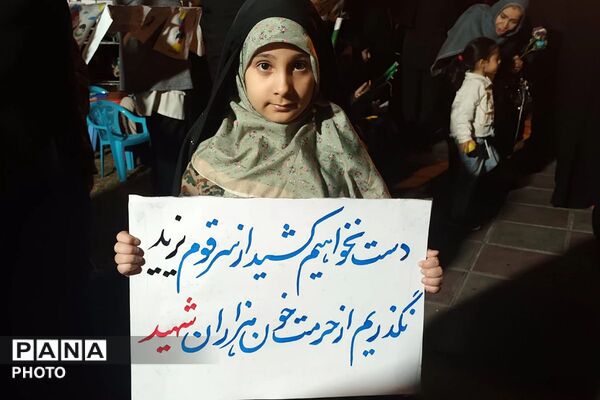 دست نخواهیم کشید از سر قوم یزید
نگذریم از حرمت خون هزاران شهید
PANA
PHOTO